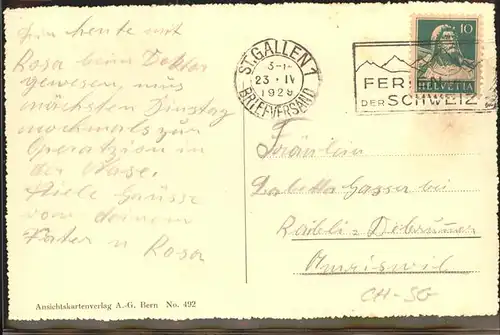 Bin heute mit
Rosa beim Doktor
gewesen, muss
nächsten Dinstag
nochmals zur
Operatzion in
der Nase.
Viele Grüsse
von deinem
Vater u Rosa
ST. GALLEN 1
23 · IV
BRIEFVERSAND
FERIEN
DER SCHWEIZ
10
HELVETIA
Fräulein
Gasser bei
Amriswil
CH-SG
Ansichtskartenverlag A.-G. Bern No. 492